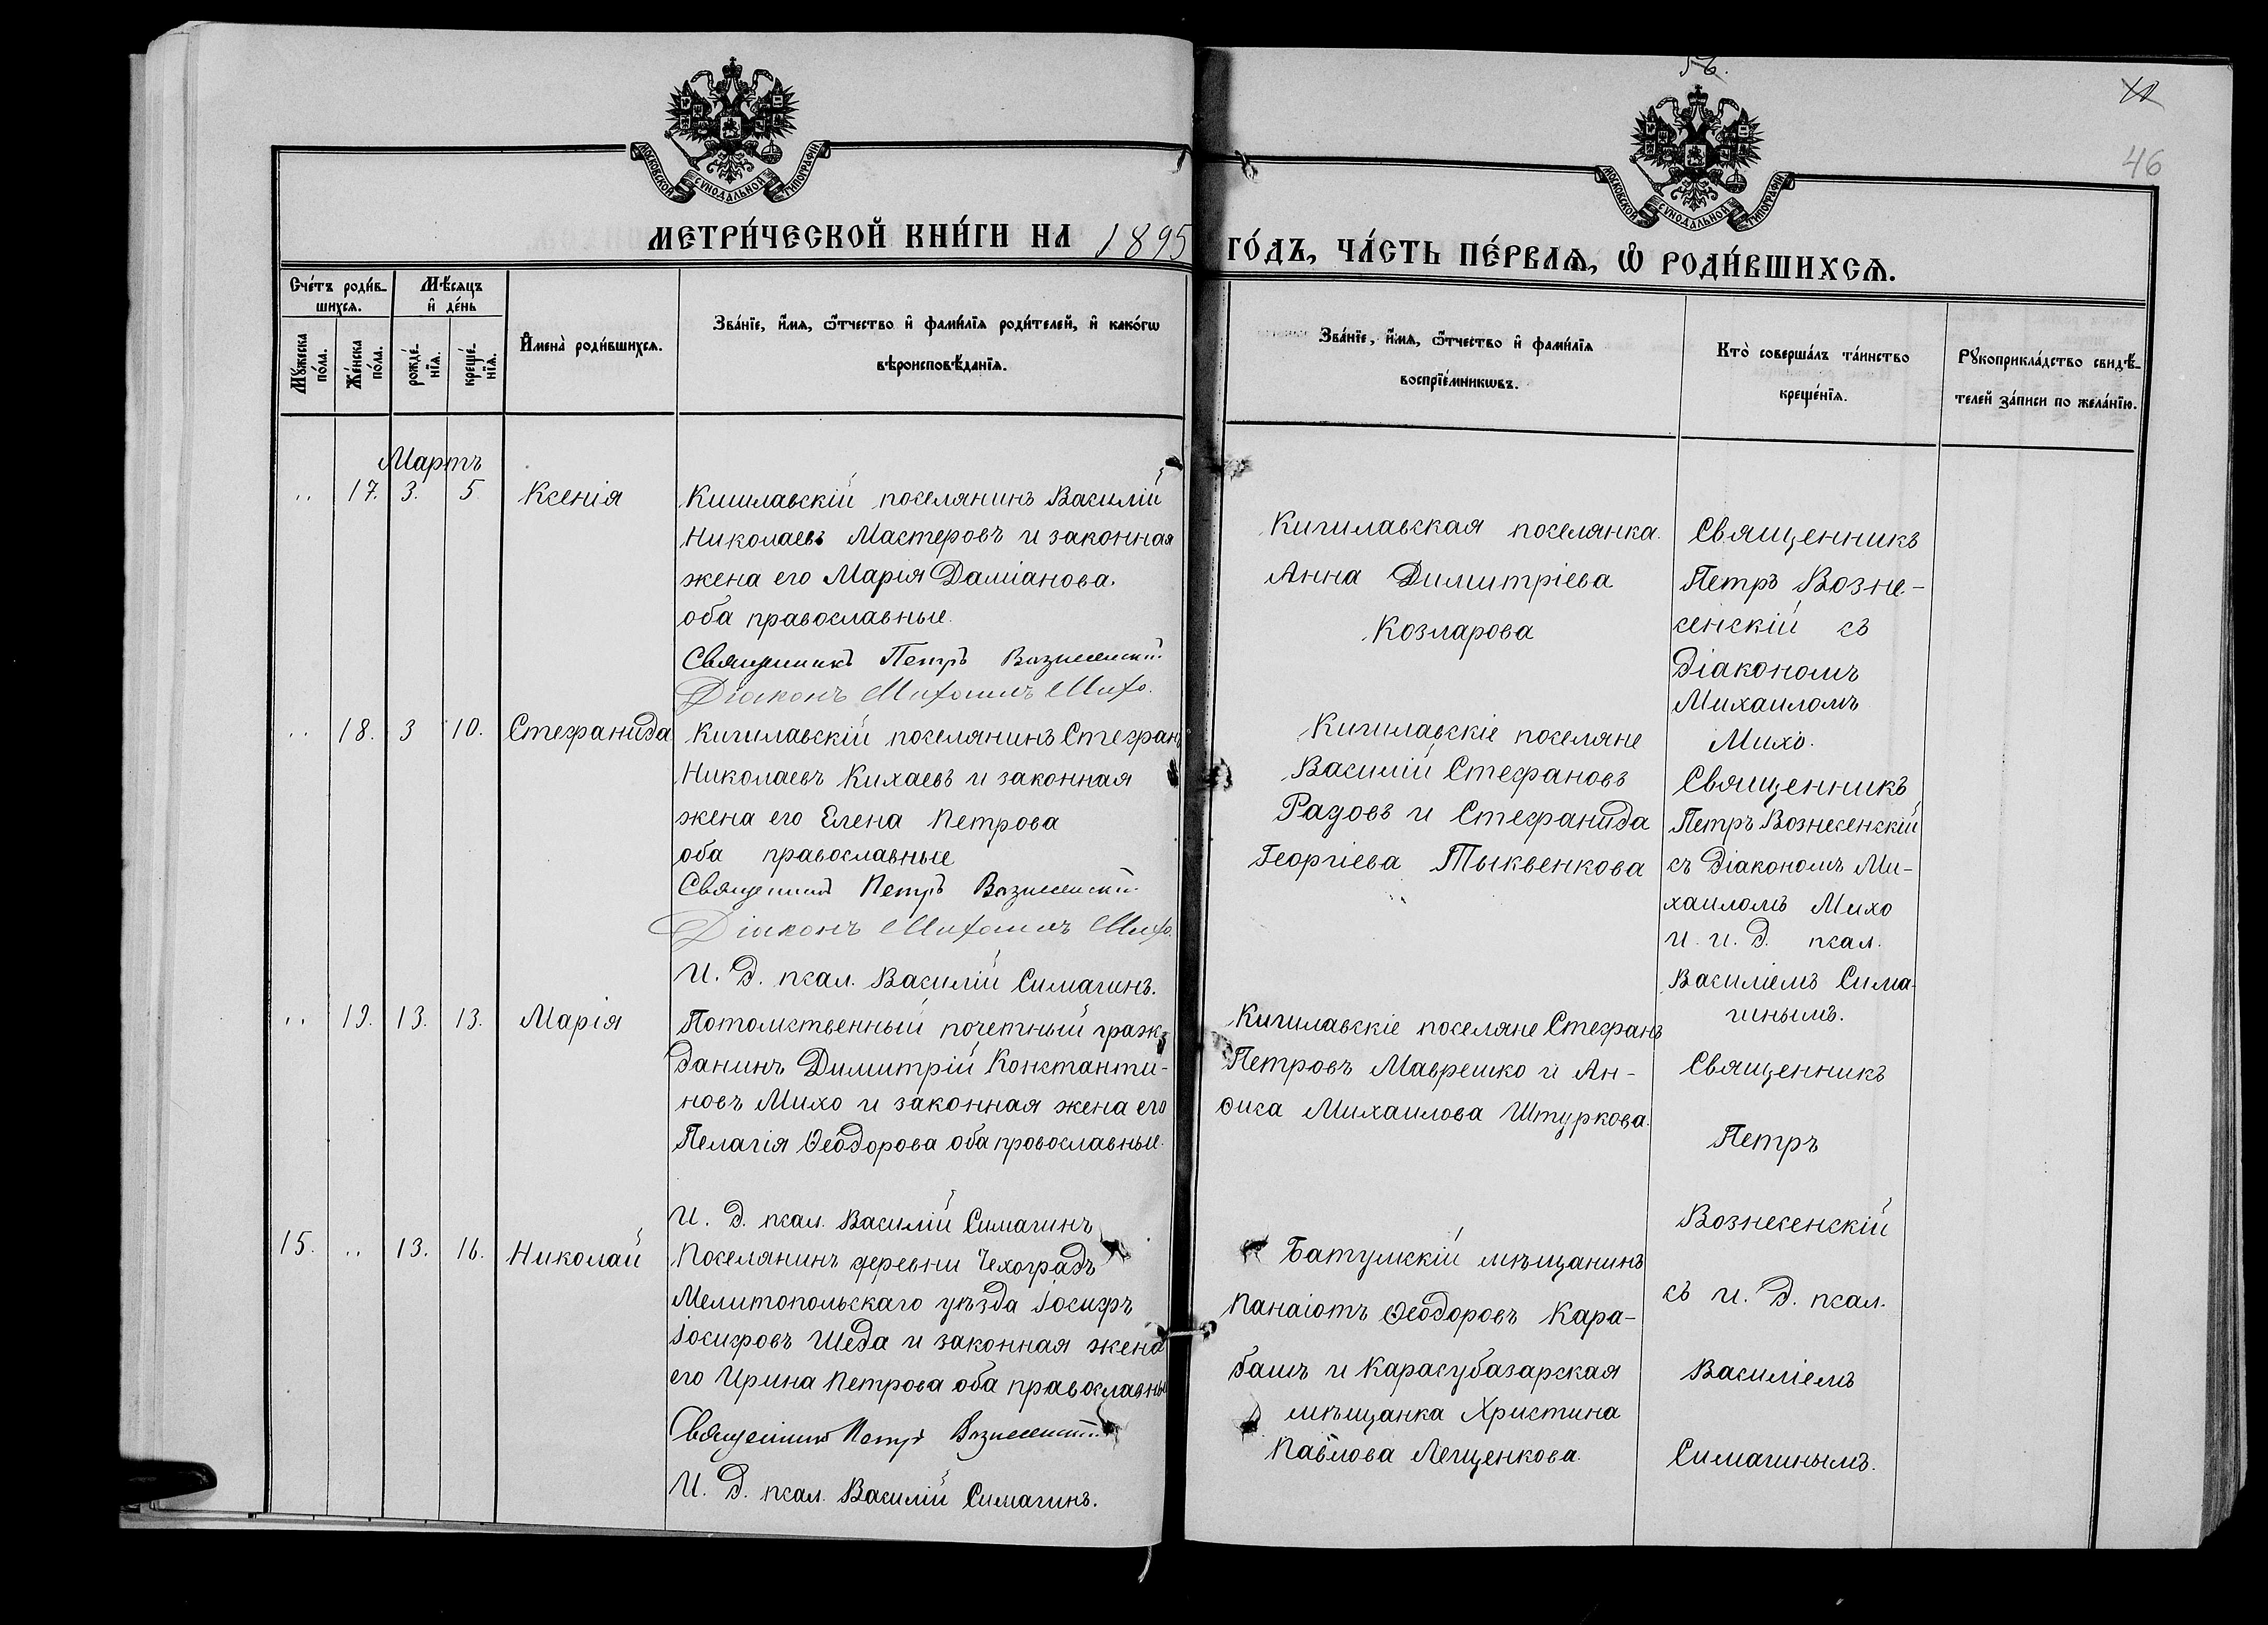 56.
12
46
МОСКОВСКОЙ СУНОДАЛЬНОЙ ТИПОГРАФІИ
МОСКОВСКОЙ СУНОДАЛЬНОЙ ТИПОГРАФІИ
МЕТРИ́ЧЕСКОЙ КНИ́ГИ НА 1895 ГО́ДЪ, ЧА́СТЬ ПЕ́РВАѦ, Ѡ РОДИ́ВШИХСѦ.
Сче́тъ роди́в-
шихсѧ.
Мꙋ́жеска по́ла.
Же́нска по́ла.
Мѣ́сѧцъ
и҆ де́нь
рожде́-
нїѧ.
креще́-
нїѧ.
И҆мена̀ роди́вшихсѧ.
Зва́нїе, и҆́мѧ, ѻ҆́тчество и҆ фами́лїѧ роди́телей, и҆ како́гѡ
вѣроисповѣ́данїѧ.
Зва́нїе, и҆́мѧ, ѻ҆́тчество и҆ фами́лїѧ
воспрїе́мникѡвъ.
Кто̀ соверша́лъ та́инство
креще́нїѧ.
Рꙋкоприкла́дство свидѣ́-
телей за́писи по жела́нїю.
Мартъ
.. 17. 3. 5. Ксенія
Кишлавскій поселянинъ Василій
Николаевъ Мастеровъ и законная
жена его Марія Даміанова.
оба православные.
Священникъ Петръ Вознесенскій
Діаконъ Михаилъ Михо.
Кишлавская поселянка
Анна Димитріева
Козларова
Священникъ
Петръ Возне-
сенскій съ
Діакономъ
Михаиломъ
Михо.
.. 18. 3 10. Стефанида
Кишлавскій поселянинъ Стефанъ
Николаевъ Кихаевъ и законная
жена его Елена Петрова
оба православные
Священникъ Петръ Вознесенскій
Діаконъ Михаилъ Михо.
И. Д. псал. Василій Симагинъ.
Кишлавскіе поселяне
Василій Стефановъ
Радовъ и Стефанида
Георгіева Тыквенкова
Священникъ
Петръ Вознесенскій
съ Діакономъ Ми-
хаиломъ Михо
и и. Д. псал.
Василіемъ Сима-
гинымъ.
.. 19. 13. 13. Марія
Потомственный почетный граж-
данинъ Димитрій Константи-
новъ Михо и законная жена его
Пелагія Ѳеодорова оба провославные.
И. Д. псал. Василій Симагинъ
Кишлавскіе поселяне Стефанъ
Петровъ Маврешко и Ан-
ѳиса Михаилова Штуркова.
Священникъ
Петръ
Вознесенскій
съ и. Д. псал.
Василіемъ
Симагинымъ.
15. .. 13. 16. Николай
Поселянинъ деревни Чехоградъ
Мелитопольскаго уѣзда Іосифъ
Іосифовъ Шеда и законная жена
его Ирина Петрова оба православны
Священникъ Петръ Вознесенскій
И. Д. псал. Василій Симагинъ.
Батумскій мѣщанинъ
Панаіотъ Ѳеодоровъ Кара-
башъ и Карасубазарская
мѣщанка Христина
Павлова Лещенкова.